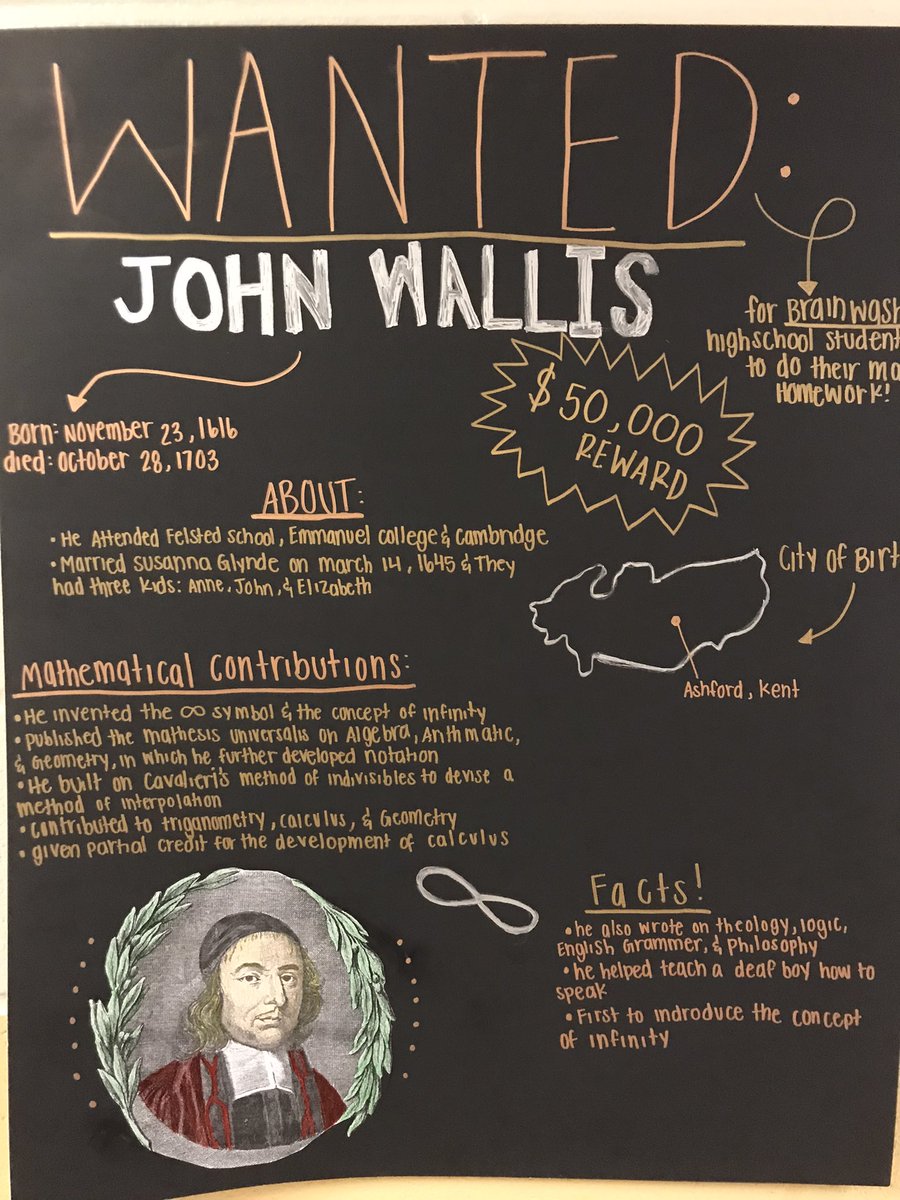 WANTED:
JOHN WALLIS
for BRAINWASH
highschool student
to do their ma
HOMEWORK!
$50,000
REWARD
BORN: NOVEMBER 23, 1616
died: OCTOBER 28, 1703
ABOUT:
• He Attended Felsted school, Emmanuel college & Cambridge
• Married Susanna Glynde on march 14, 1645 & They
had three kids: Anne, John, & Elizabeth
City of Birt
Ashford, Kent
Mathematical Contributions:
• He invented the ∞ symbol & the concept of infinity
• Published the mathesis universalis on Algebra, Arithmatic,
& Geometry, in which he further developed notation
• He built on Cavalieri's method of indivisibles to devise a
method of interpolation
• contributed to triganometry, calculus, & Geometry
• given partial credit for the development of calculus
Facts!
• he also wrote on theology, logic,
English Grammer, & Philosophy
• he helped teach a deaf boy how to
speak
• First to indroduce the concept
of infinity